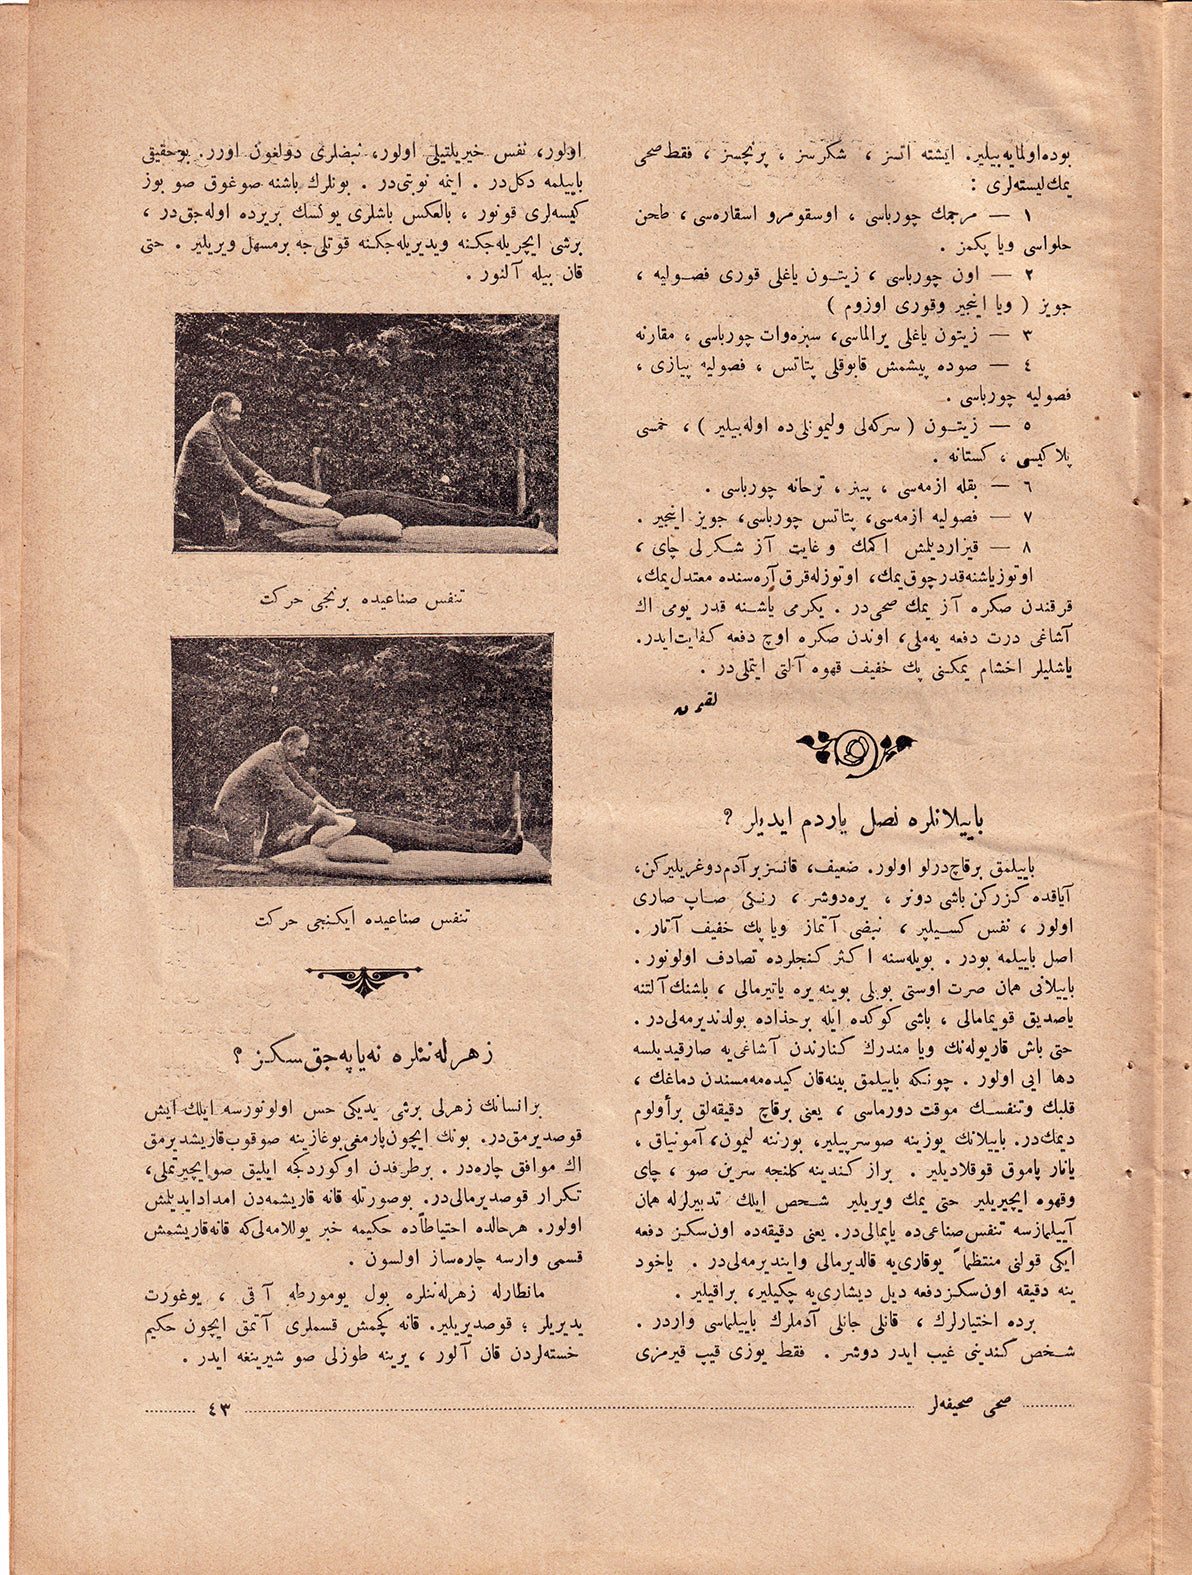 بوده‌اولمایه‌بیلیر. ایشته اتسز ، شکرسز ، پرنچسز ، فقط صحی
یمك لیسته‌لری :
١ — مرجمك چورباسی ، اوسقومرو اسقاره‌سی ، طحن
حلواسی ویا پکمز .
٢ — اون چورباسی ، زیتـون یاغلی قوری فصـولیه ،
جویز ( ویا اینجیر وقوری اوزوم )
٣ — زیتون یاغلی یرالماسی، سبزه‌وات چورباسی ، مقارنه
٤ — صوده پیشمش قابوقلی پتاتس ، فصولیه پیازی ،
فصولیه چورباسی .
٥ — زیتـون ( سرکه‌لی ولیمونلی‌ده اوله‌بیلیر ) ، خمسی
پلاکیسی ، کستانه .
٦ — بقله ازمه‌سی ، پینر ، ترحانه چورباسی .
٧ — فصولیه ازمه‌سی، پتاتس چورباسی، جویز اینجیر .
٨ — قیزاردیلمش اکمك و غایت آز شـکرلی چای ،
اوتوزیاشنه‌قدرچوق‌یمك، اوتوزله‌قرق آره‌سنده معتدل یمك،
قرقندن صکره آز یمك صحی‌در . یکرمی یاشـنه قدر یومی اك
آشاغی درت دفعه یه‌ملی، اوندن صکره اوچ دفعه کفایت‌ایدر.
یاشلیلر اخشام یمکنی پك خفیف قهوه آلتی ایتملی‌در .
لقمن
باییلانلره نصل یاردم ایدیلر ؟
باییلمق برقاچ‌درلو اولور. ضعیف، قانسزبرآدم‌دوغریلیرکن،
آیاقده کزرکن باشی دونر ، یره‌دوشر ، رنکی صـاپ صاری
اولور ، نفس کسـیلیر ، نبضی آتماز ویا پك خفیف آتار .
اصل باییلمه بودر . بویله‌سنه اکثر کنجلرده تصادف اولونور .
باییلانی همان صرت اوستی بویلی بوینه یره یاتیرمالی ، باشنك آلتنه
یاصدیق قویمامالی ، باشی کوکده ایله برحذاده بولدندیرمه‌لی‌در .
حتی باش قاریوله‌نك ویا مندرك کنارندن آشاغی‌یه صارقیدیلسه
دها ایی اولور . چونکه باییلمق بینه‌قان کیده‌مه‌مسندن دماغك ،
قلبك وتنفسـك موقت دورماسی ، یعنی برقاچ دقیقه‌لق برأولوم
دیمك‌در. باییلانك یوزینه صوسرپیلیر، بورننه لیمون، آمونیاق ،
یانار پاموق قوقلادیلیر . براز کـندینه کلنجه سرین صو ، چای
وقهوه ایچیریلیر حتی یمك ویریلیر شـخص ایلك تدبیرلرله همان
آییلمازسه تنفس‌صناعی‌ده یاپمالی‌در. یعنی دقیقه‌ده اون‌سکـز دفعه
ایکی قولنی منتظماً یوقاری‌یه قالدیرمالی وایندیرمه‌لی‌در . یاخود
ینه دقیقه اون‌سکـزدفعه دیل دیشاری‌یه چکیلیر، براقیلیر .
برده اختیارلرك ، قانلی جانلی آدملرك باییلماسی واردر .
شـخص کـندینی غیب ایدر دوشر . فقط یوزی قیپ قیرمزی
اولور، نفس خیریلتیلی اولور، نبضلری دولغون اورر. بوحقیقی
باییلمه دکل‌در . اینمه نوبتی‌در . بونلرك باشنه صوغوق صو بوز
کیسه‌لری قونور ، بالعکس باشلری یوکسك بریرده اوله‌جق‌در ،
برشی ایچریله‌جکـنه ویدیریله‌جکـنه قوتلی‌جه برمسهل ویریلیر . حتی
قان بیله آلنور .
تنفس صناعیده برنجی حرکت
تنفس صناعیده ایکـنجی حرکت
زهرله‌ننلره نه‌یاپه‌جق‌سکـز ؟
برانسانك زهرلی برشی یدیکی حس اولونورسه ایلك ایش
قوصدیرمق‌در. بونك ایچون‌پارمغی‌بوغازینه صوقوب‌قاریشدیرمق
اك موافق چاره‌در . برطرفدن اوکوردکجه ایلیق صوایچیرتملی،
تکرار قوصدیرمالی‌در. بوصورتله قانه قاریشمه‌دن امدادایدیلمش
اولور. هرحالده احتیاطاًده حکیمه خبر یوللامه‌لی‌که قانه‌قاریشمش
قسمی وارسه چاره‌ساز اولسون .
مانطارله زهرله‌ننلره بول یومورطه آقی ، یوغورت
یدیریلر ؛ قوصدیریلیر. قانه کچمش قسملری آتمق ایچون حکیم
خسته‌لردن قان آلور ، یرینه طوزلی صو شیرینغه ایدر .
صحی صحیفه‌لر ٤٣